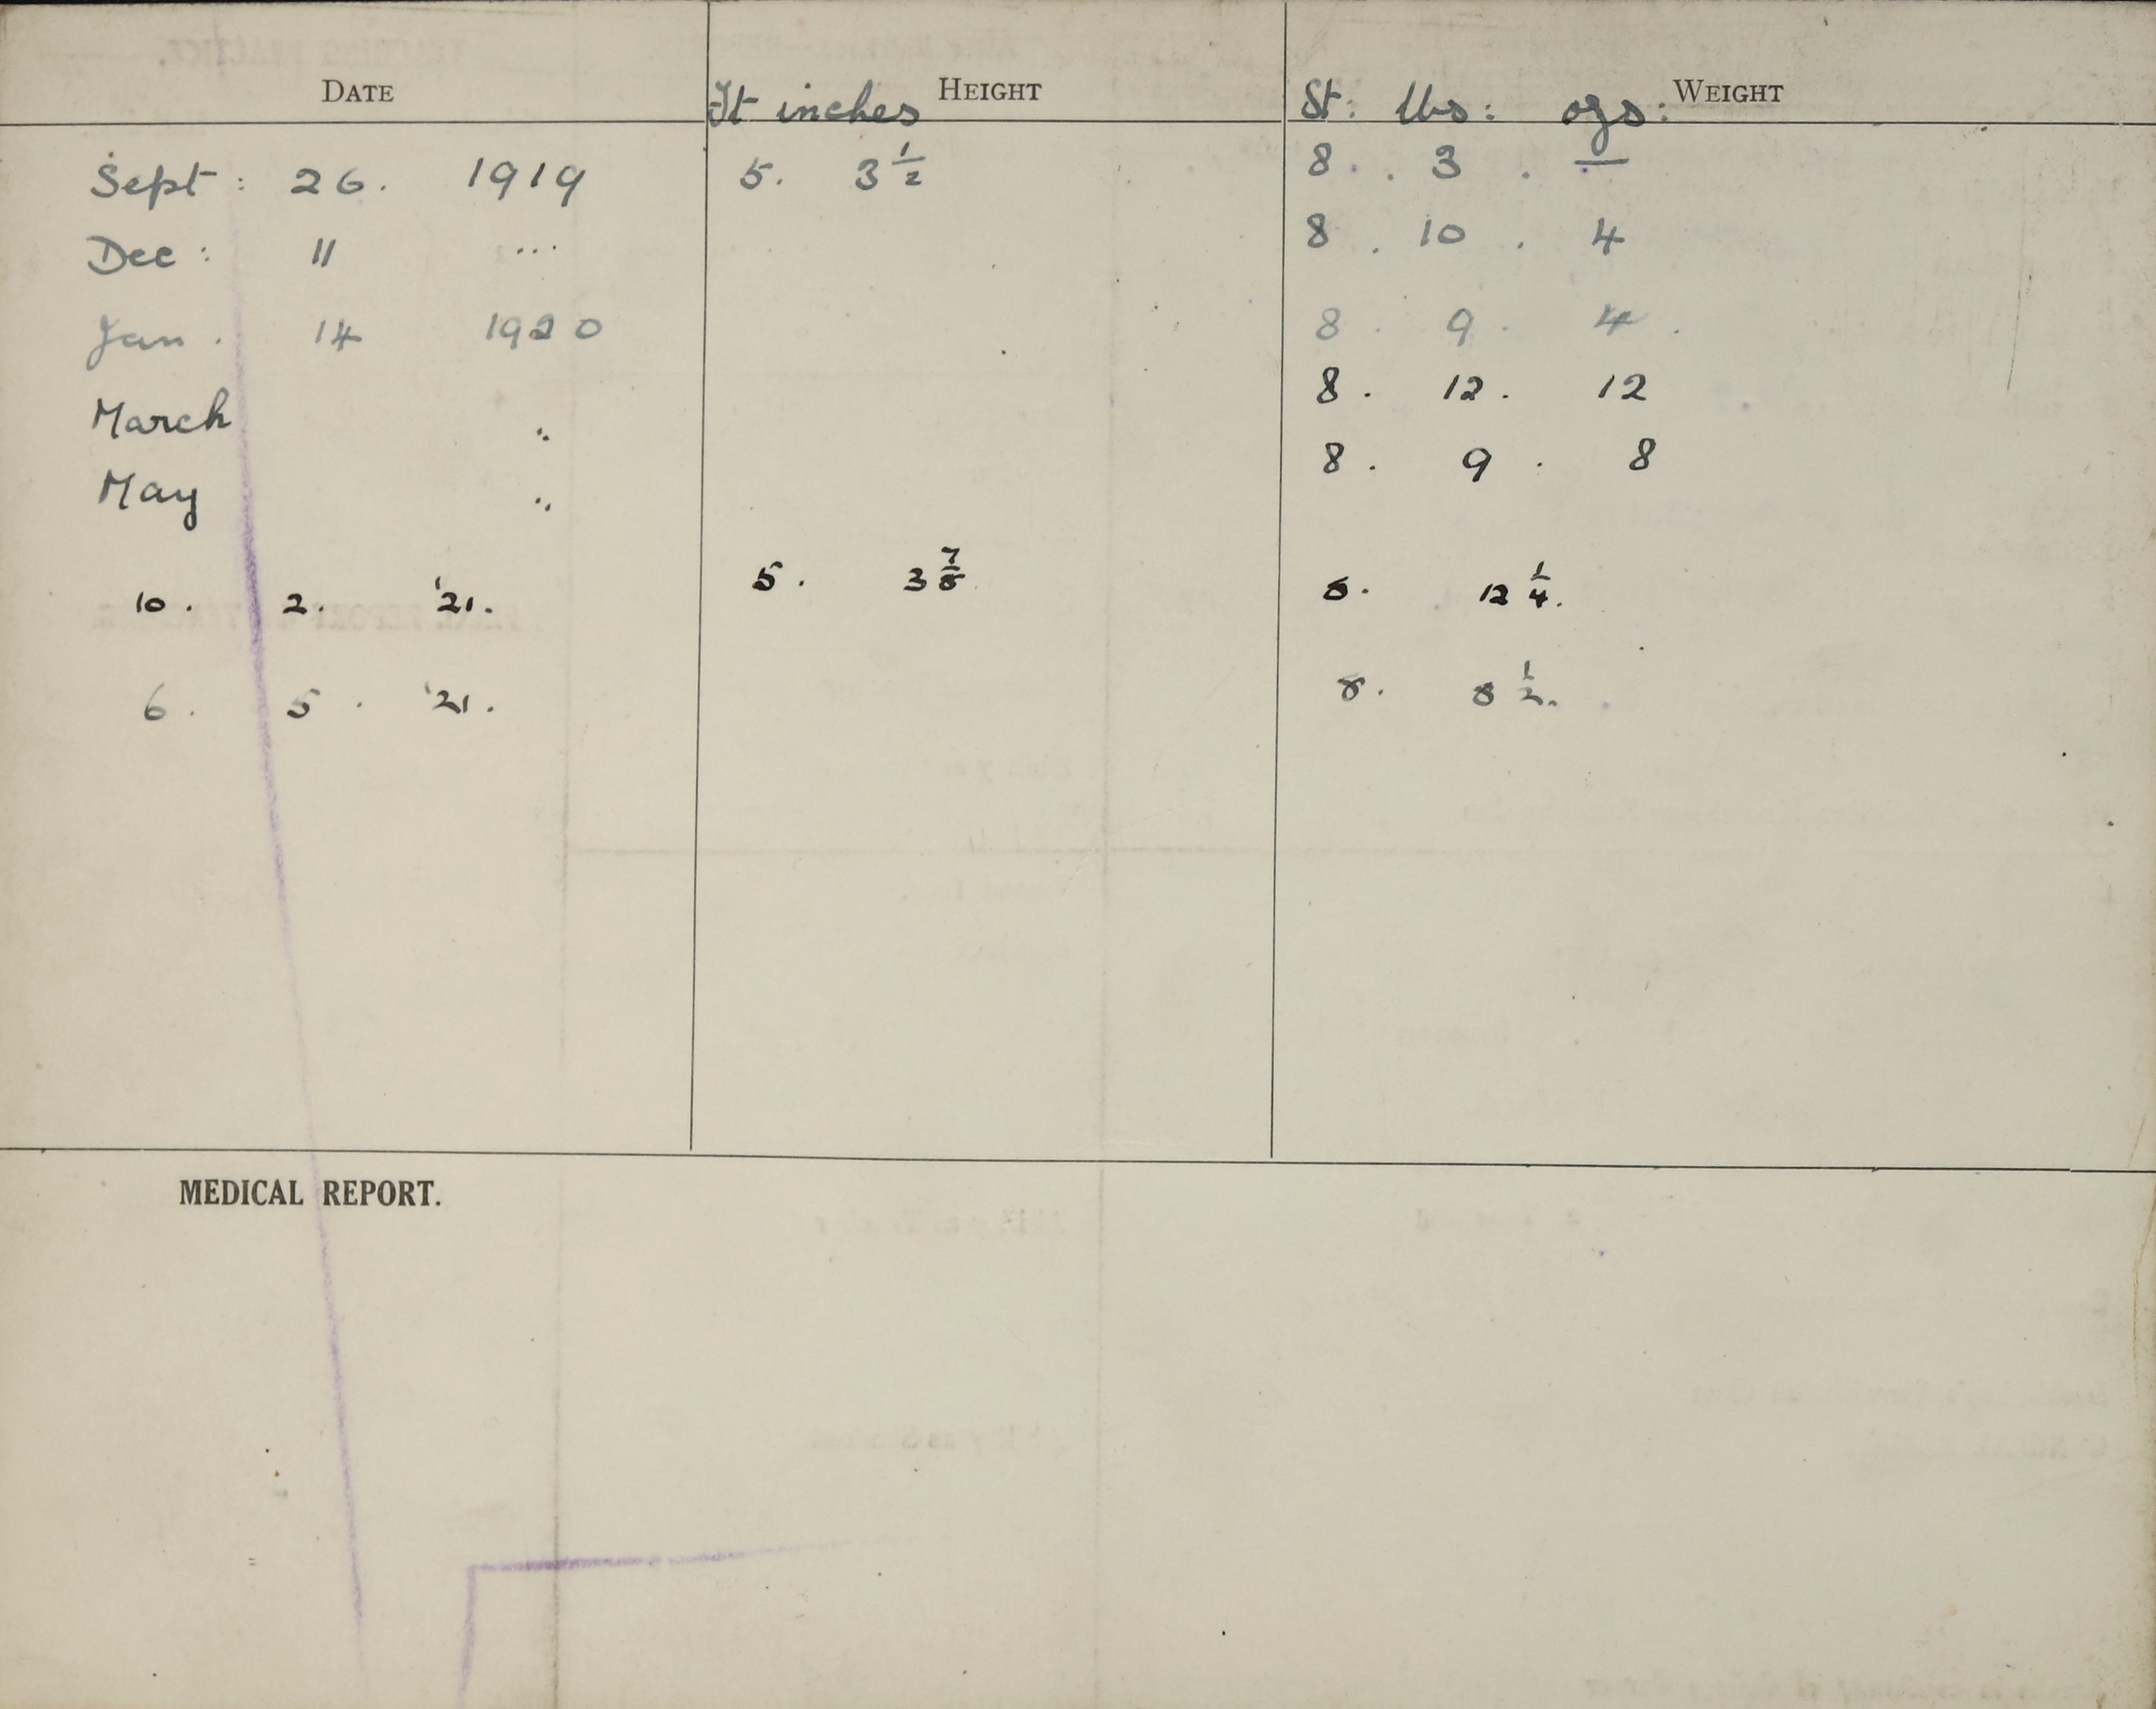 DATE Ft inches HEIGHT St: lbs: ozs: WEIGHT
Sept: 26. 1919 5. 3 1/2 8 . . 3 . —
Dec: 11 ... 8 . 10 . 4
Jan. 14 1920 8 . 9 . 4 .
March " 8 . 12 . 12
May " 8 . 9 . 8
10. 2. '21. 5. 3 7/8 8. 12 1/4.
6. 5. '21. 8. 8 1/2.
MEDICAL REPORT.